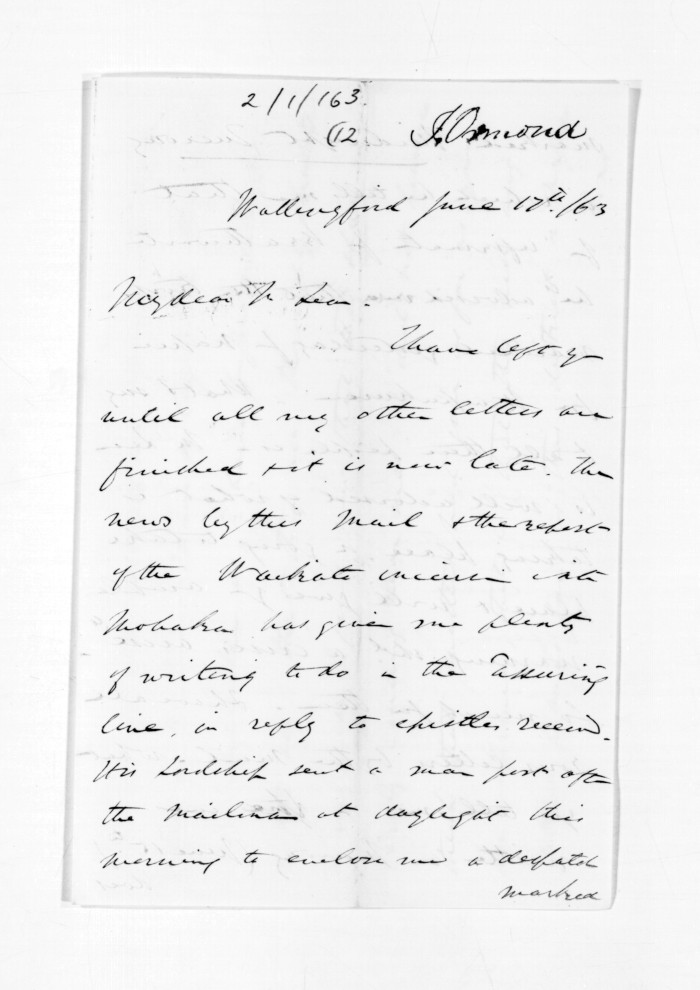 2/1/163.
(12 J Ormond
Wallingford June 17th /63
My dear McLean.
I have left yr
until all my other letters are
finished & it is now late. The
news by this Mail & the report
of the Waikato incursion into
Mohaka has given me plenty
of writing to do in the assuring
line, in reply to epistles received.
His Lordship sent a man post after
the Mailman at daylight this
morning to enclose me a despatch
marked